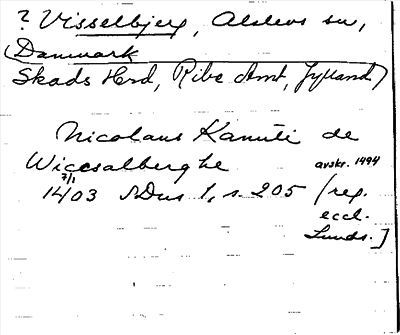 ? Visselbjerg, Alslevs sn,
(Danmark
Skads Hrd, Ribe Amt, Jylland)
Nicolaus Kanuti de
Wicesalberghe avskr. 1494
7/1
14/03 DDns 1, s. 205 [reg.
eccl.
Lunds.]